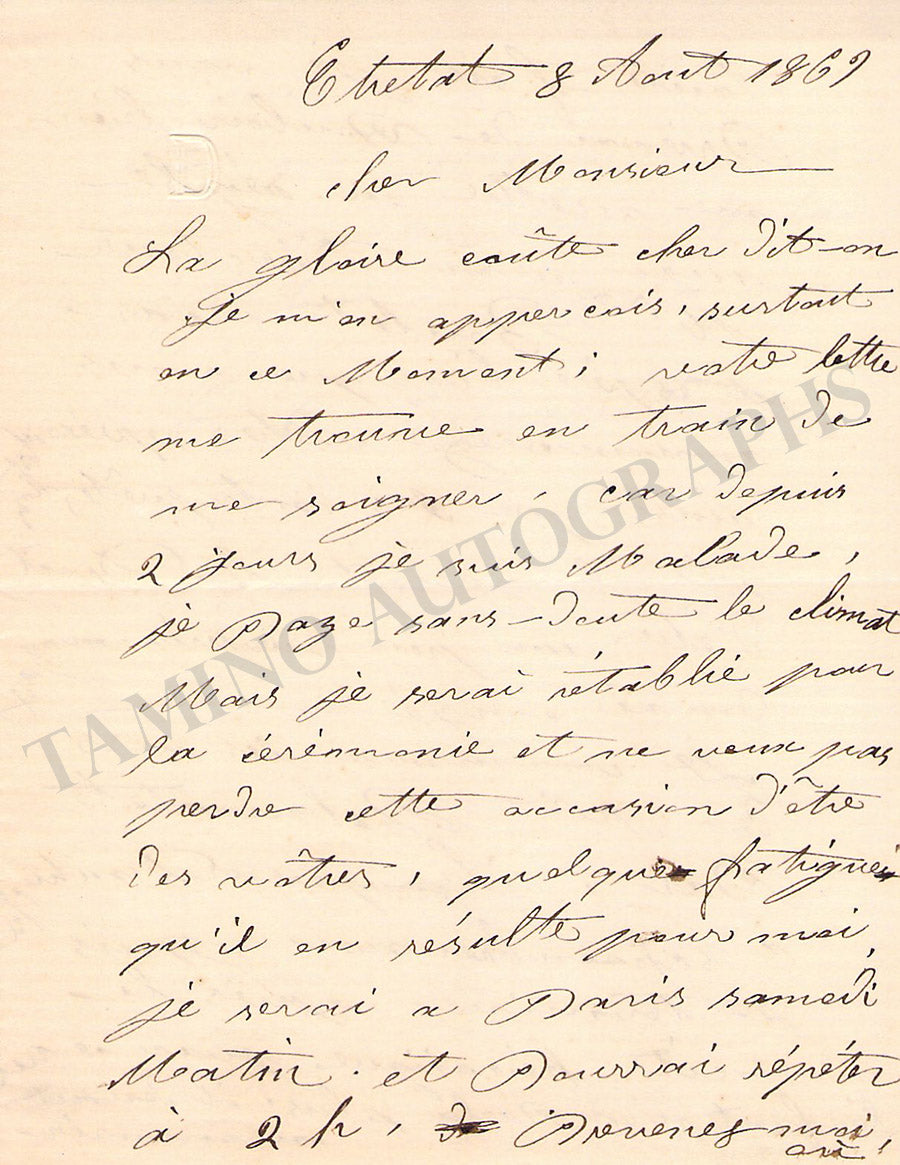 Etretat 8 Aout 1869
cher Monsieur
La gloire coûte cher dit-on
Je m'en apperçois, surtout
en ce Moment; votre lettre
me trouve en train de
me soigner, car depuis
2 jours je suis Malade,
je Paye sans-doute le climat
Mais je serai rétablie pour
la cérémonie et ne veux pas
perdre cette occasion d'être
des vôtres, quelque fatigue
qu'il en résulte pour moi,
je serai a Paris samedi
Matin. et Pourrai répéter
à 2 h, Prevenez moi
où,
D
TAMINO AUTOGRAPHS